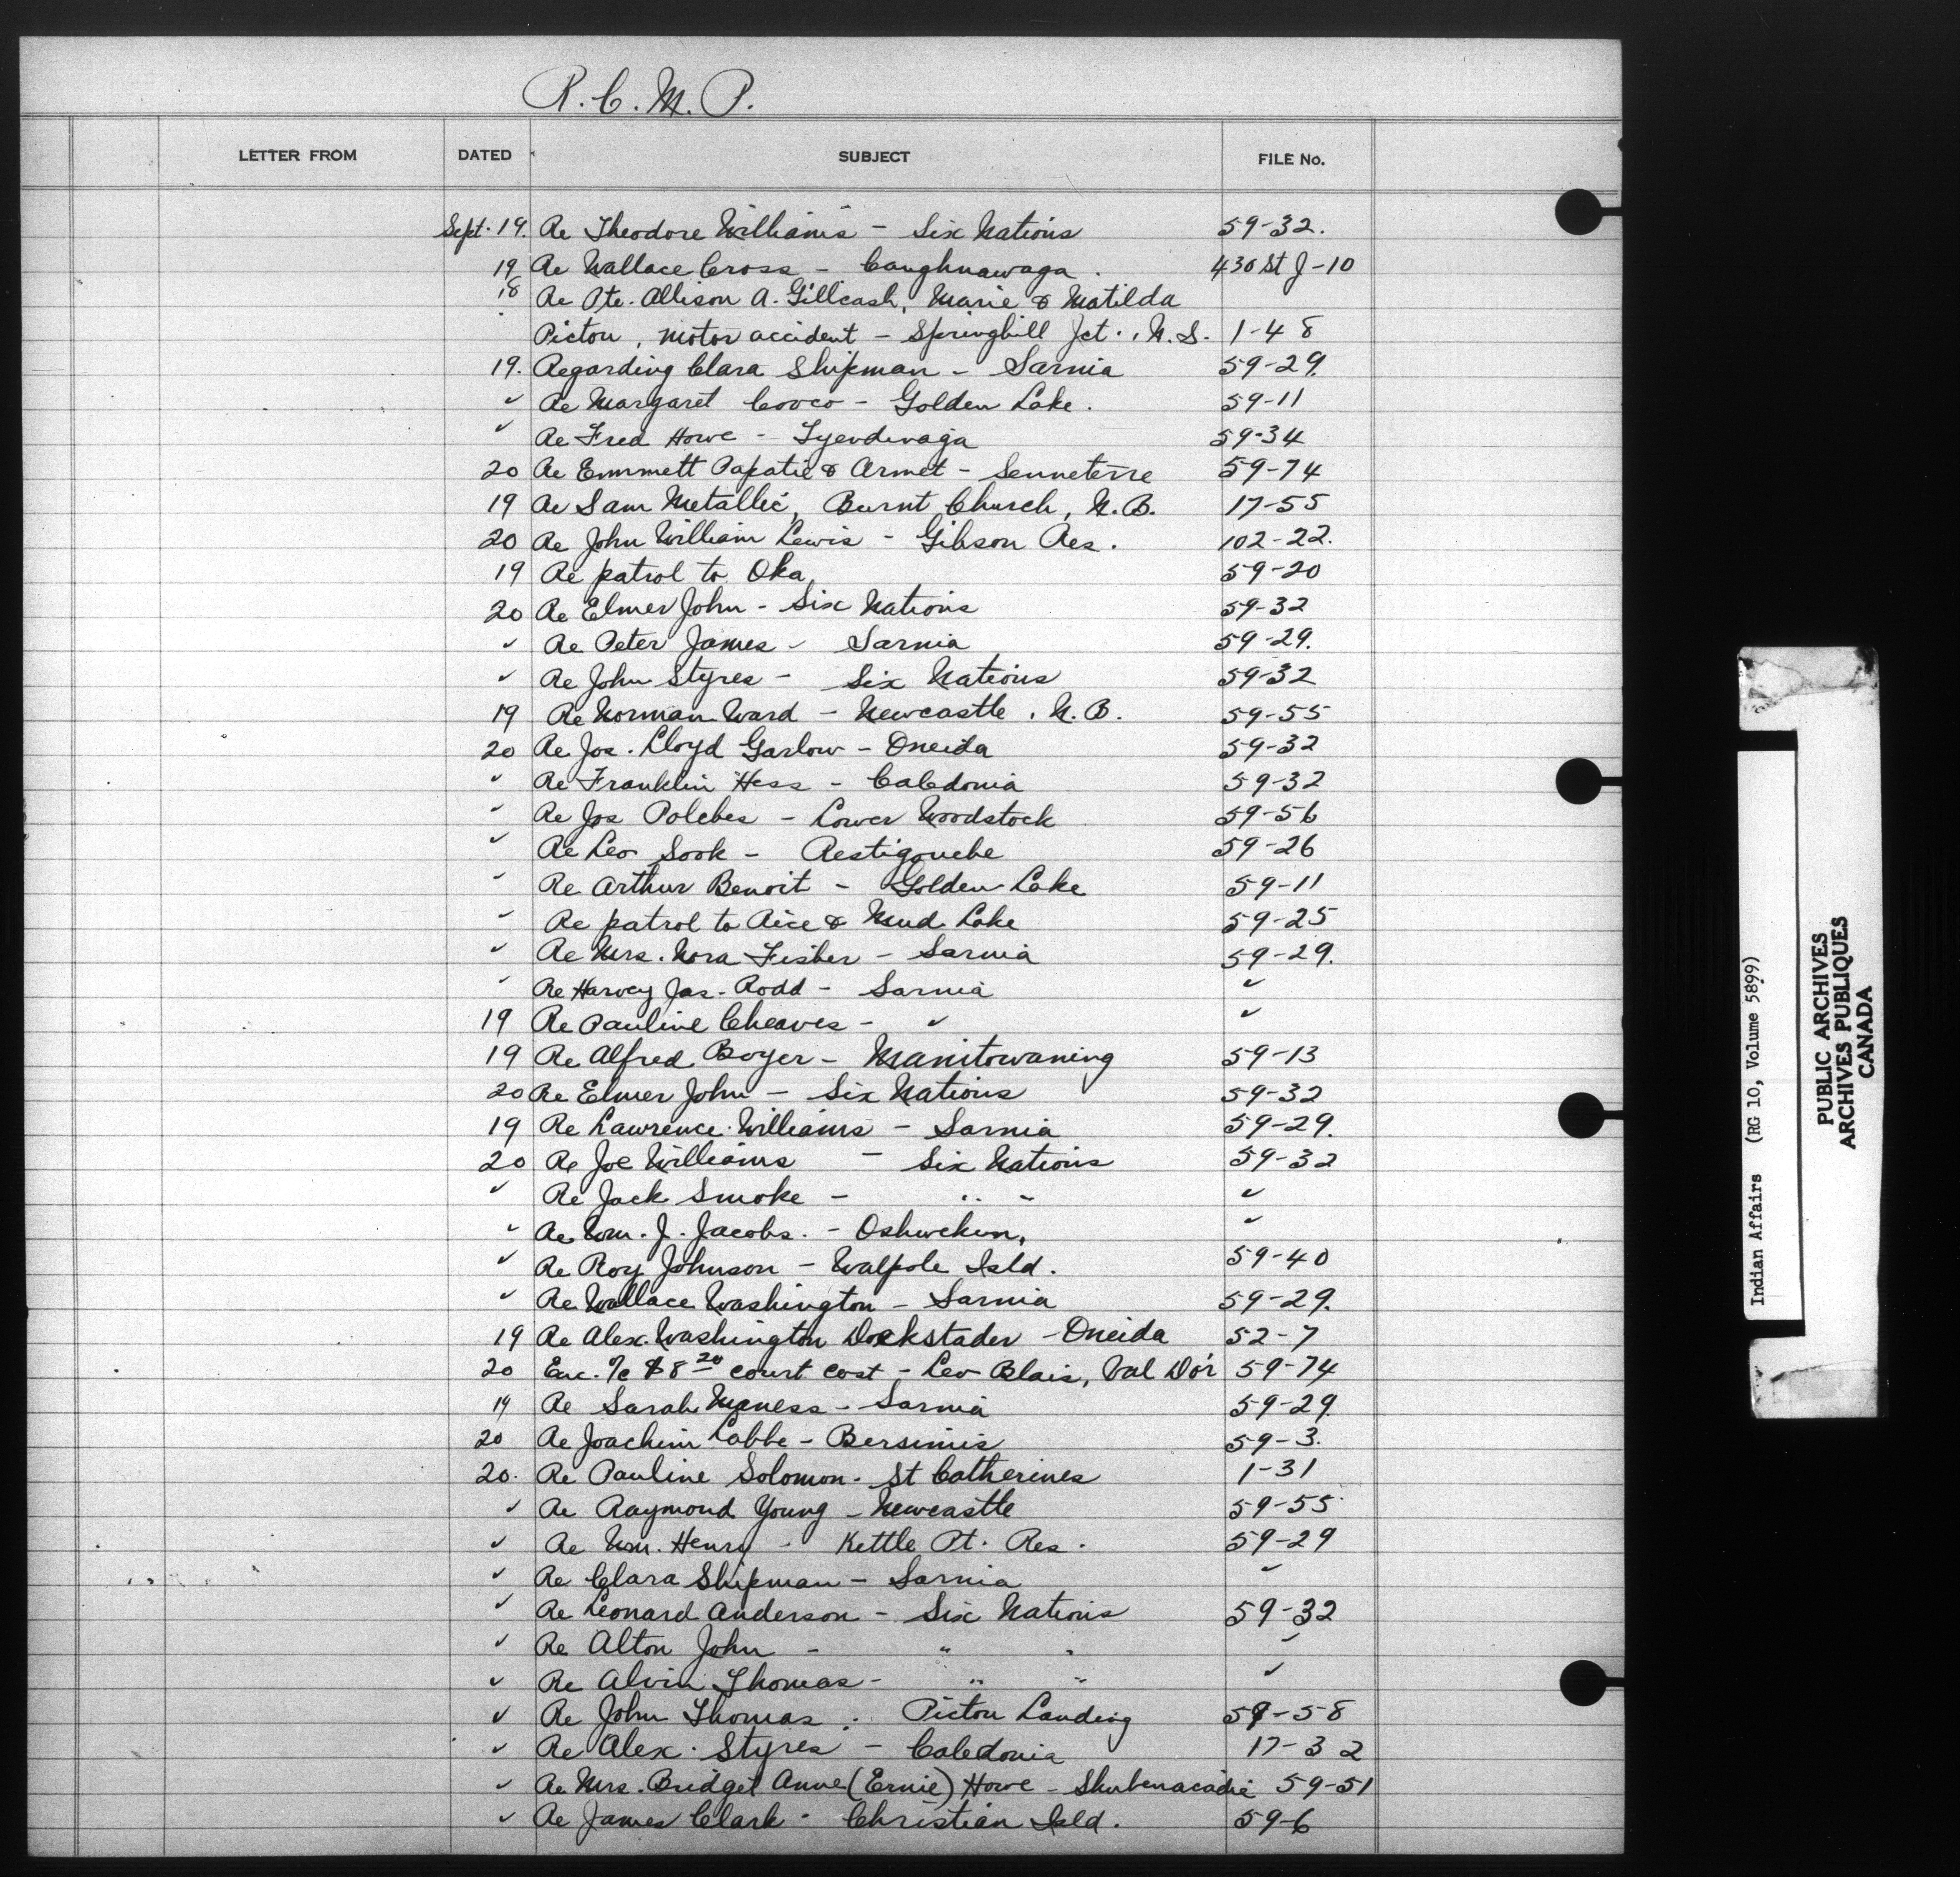 R. C. M. P.
LETTER FROM DATED SUBJECT FILE No.
Sept. 19. Re Theodore Williams - Six Nations 59-32.
19 Re Wallace Cross - Caughnawaga. 430 St J-10
18 Re Pte. Allison A. Gillcash, Marie & Matilda
Pictou, motor accident - Springhill Jct., N.S. 1-48
19. Regarding Clara Shipman - Sarnia 59-29.
✓ Re Margaret Cooco - Golden Lake. 59-11
✓ Re Fred Howe - Tyendinaga 59-34
20 Re Emmett Papatie & Armet - Senneterre 59-74
19 Re Sam Metallic, Burnt Church, N.B. 17-55
20 Re John William Lewis - Gibson Res. 102-22.
19 Re patrol to Oka, 59-20
20 Re Elmer John - Six Nations 59-32
✓ Re Peter James - Sarnia 59-29.
✓ Re John Styres - Six Nations 59-32
19 Re Norman Ward - Newcastle, N.B. 59-55
20 Re Jos. Lloyd Garlow - Oneida 59-32
✓ Re Franklin Hess - Caledonia 59-32
✓ Re Jos Polches - Lower Woodstock 59-56
✓ Re Leo Sook - Restigouche 59-26
✓ Re Arthur Benoit - Golden Lake 59-11
✓ Re patrol to Rice & Mud Lake 59-25
✓ Re Mrs. Nora Fisher - Sarnia 59-29.
✓ Re Harvey Jas. Rodd - Sarnia ✓
19 Re Pauline Cheaves - ✓ ✓
19 Re Alfred Boyer - Manitowaning 59-13
20 Re Elmer John - Six Nations 59-32
19 Re Lawrence Williams - Sarnia 59-29.
20 Re Joe Williams - Six Nations 59-32
✓ Re Jack Smoke - " " ✓
✓ Re Wm. J. Jacobs. - Oshweken, ✓
✓ Re Roy Johnson - Walpole Isld. 59-40
✓ Re Wallace Washington - Sarnia 59-29.
19 Re Alex. Washington Dockstader - Oneida 52-7
20 Enc. a/c $8 20 court cost - Leo Blais, Val Dor 59-74
19 Re Sarah Maness - Sarnia 59-29.
20 Re Joachim Labbe - Bersimis 59-3.
20. Re Pauline Solomon - St Catherines 1-31
✓ Re Raymond Young - Newcastle 59-55
✓ Re Wm. Henry - Kettle Pt. Res. 59-29
✓ Re Clara Shipman - Sarnia ✓
✓ Re Leonard Anderson - Six Nations 59-32
✓ Re Alton John - " " ✓
✓ Re Alvin Thomas - " " ✓
✓ Re John Thomas - Pictou Landing 59-58
✓ Re Alex. Styres - Caledonia 17-32
✓ Re Mrs. Bridget Anne (Ernie) Howe - Shubenacadie 59-51
✓ Re James Clark - Christian Isld. 59-6
Indian Affairs (RG 10, Volume 5899)
PUBLIC ARCHIVES
ARCHIVES PUBLIQUES
CANADA